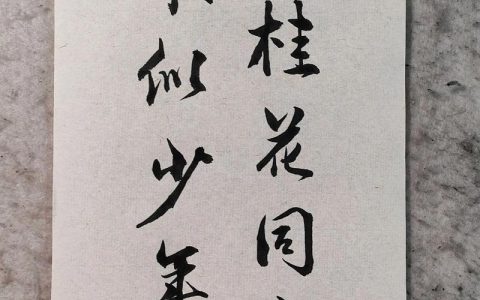 桂花同
似少年